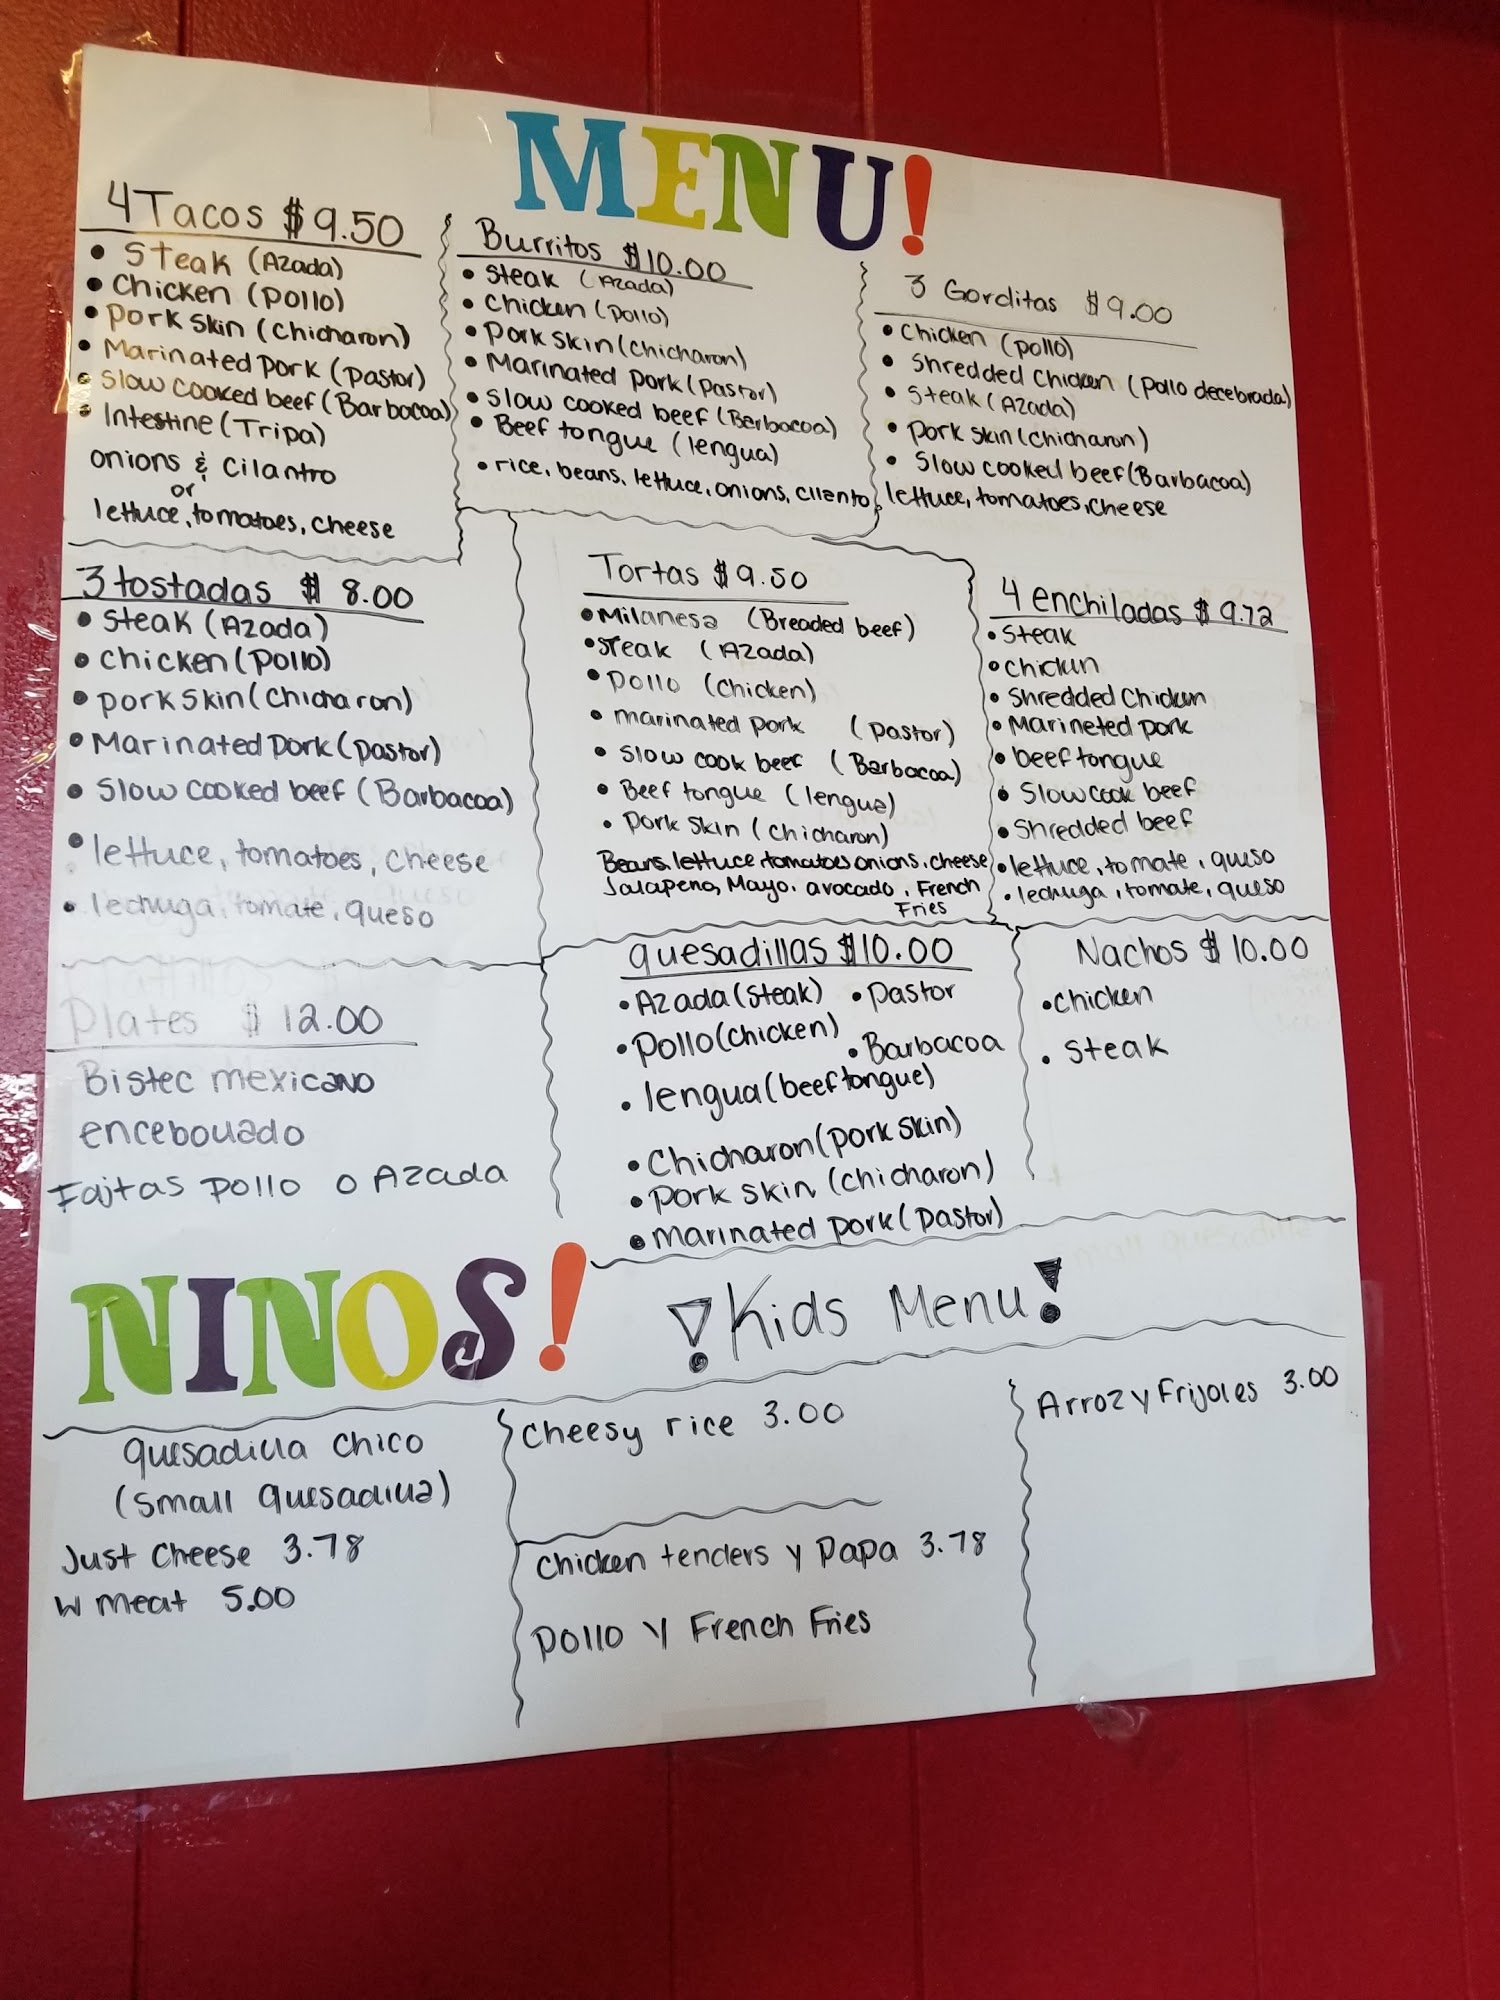 MENU!
4 Tacos $9.50
• Steak (Azada)
• Chicken (Pollo)
• Pork Skin (Chicharon)
• Marinated Pork (Pastor)
• Slow cooked beef (Barbacoa)
• Intestine (Tripa)
onions & Cilantro
or
lettuce, tomatoes, cheese
Burritos $10.00
• Steak (Azada)
• Chicken (Pollo)
• Pork Skin (Chicharon)
• Marinated Pork (Pastor)
• Slow cooked beef (Berbacoa)
• Beef tongue (lengua)
• rice, beans, lettuce, onions, cilanto
3 Gorditas $9.00
• Chicken (pollo)
• Shredded Chicken (Pollo decebrada)
• Steak (Azada)
• Pork Skin (Chicharon)
• Slow cooked beef (Barbacoa)
lettuce, tomatoes, cheese
3 tostadas $8.00
• Steak (Azada)
• Chicken (Pollo)
• Pork Skin (Chicharon)
• Marinated Pork (Pastor)
• Slow cooked beef (Barbacoa)
• lettuce, tomatoes, cheese
• lechuga, tomate, queso
Tortas $9.50
• Milanesa (Breaded beef)
• Steak (Azada)
• Pollo (Chicken)
• marinated pork (Pastor)
• Slow cook beef (Barbacoa)
• Beef tongue (lengua)
• Pork Skin (Chicharon)
Beans, lettuce tomatoes onions, cheese
Jalapeno, Mayo, avocado, French
Fries
4 enchiladas $9.72
• Steak
• Chicken
• Shredded Chicken
• Marineted pork
• beef tongue
• Slow cook beef
• Shredded beef
• lettuce, tomate, queso
• lechuga, tomate, queso
Plates $12.00
Bistec mexicano
encebollado
Fajtas Pollo o Azada
quesadillas $10.00
• Azada (Steak) • Pastor
• Pollo (Chicken) • Barbacoa
• lengua (beef tongue)
• Chicharon (pork skin)
• Pork Skin (Chicharon)
• Marinated pork (Pastor)
Nachos $10.00
• Chicken
• Steak
NINOS! ¡Kids Menu!
quesadilla chico
(Small quesadilla)
Just Cheese 3.78
w meat 5.00
Cheesy rice 3.00
Chicken tenders y Papa 3.78
Pollo y French Fries
Arroz y Frijoles 3.00